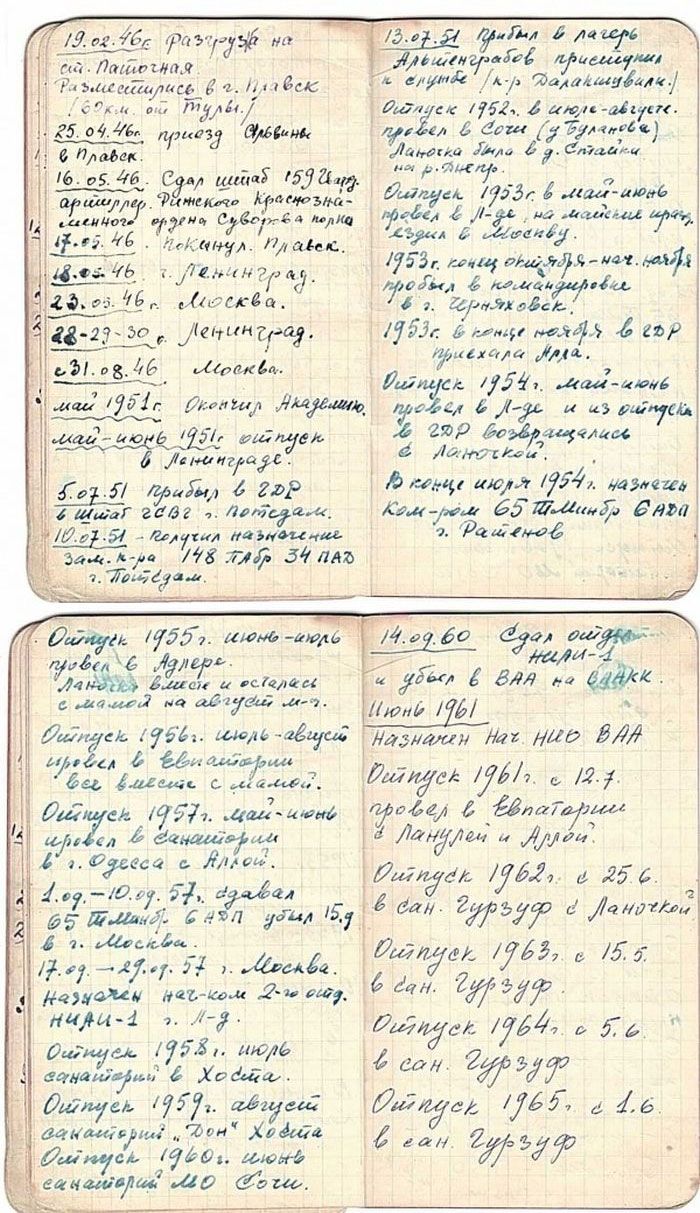 19.02.46г. Разгрузка на
ст. Паточная.
Разместились в г. Плавск
/60 км. от Тулы./
25.04.46г. приезд Альвины
в Плавск.
16.05.46. Сдал штаб 159 Гвард.
артиллер. Рижского Краснозна-
менного ордена Суворова полка
17.05.46 Покинул Плавск.
18.05.46 г. Ленинград.
23.05.46 г. Москва.
28-29-30 г. Ленинград.
с 31.08.46 Москва.
май 1951г. Окончил Академию.
май-июнь 1951г отпуск
в Ленинграде.
5.07.51 прибыл в ГДР
в штаб ГСВГ г. Потсдам.
10.07.51 - получил назначение
зам. к-ра 148 ПАбр 34 ПАД
г. Потсдам.
13.07.51 прибыл в лагерь
Альтенграбов приступил
к службе /к-р Далакишвили./
Отпуск 1952г. в июле-августе.
провел в Сочи (у Буланова)
Ланочка была в д. Стайки
на р. Днепр.
Отпуск 1953г. в май-июнь
провел в Л-де, на майские празд.
ездил в Москву.
1953г. конец октября-нач. ноября
пробыл в командировке
в г. Черняховск.
1953г. в конце ноября в ГДР
приехала Алла.
Отпуск 1954г. май-июнь
провел в Л-де и из отпуска
в ГДР возвращались
с Ланочкой.
В конце июля 1954г. назначен
Ком-ром 65 ТМинбр 6 АДП
г. Ратенов
Отпуск 1955г. июнь-июль
провел в Адлере.
Ланочка вместе и осталась
с мамой на август м-ц.
Отпуск 1956г. июль-август
провел в Евпатории
все вместе с мамой.
Отпуск 1957г. май-июнь
провел в санатории
в г. Одесса с Аллой.
1.09.-10.09.57г. сдавал
65 ТМинбр. 6 АДП убыл 15.9
в г. Москва.
17.09.-29.09.57 г. Москва.
назначен нач-ком 2-го отд.
НИАИ-1 г. Л-д.
Отпуск 1958г. июль
санаторий в Хоста.
Отпуск 1959г. август
санаторий „Дон" Хоста
Отпуск 1960г. июнь
санаторий МО Сочи.
14.09.60 Сдал отдел
НИАИ-1
и убыл в ВАА на ВАКК.
Июнь 1961
назначен нач. НИО ВАА
Отпуск 1961г. с 12.7.
провел в Евпатории
с Ланулей и Аллой.
Отпуск 1962г. с 25.6.
в сан. Гурзуф с Ланочкой
Отпуск 1963г. с 15.5.
в сан. Гурзуф.
Отпуск 1964г. с 5.6.
в сан. Гурзуф
Отпуск 1965г. с 1.6.
в сан. Гурзуф